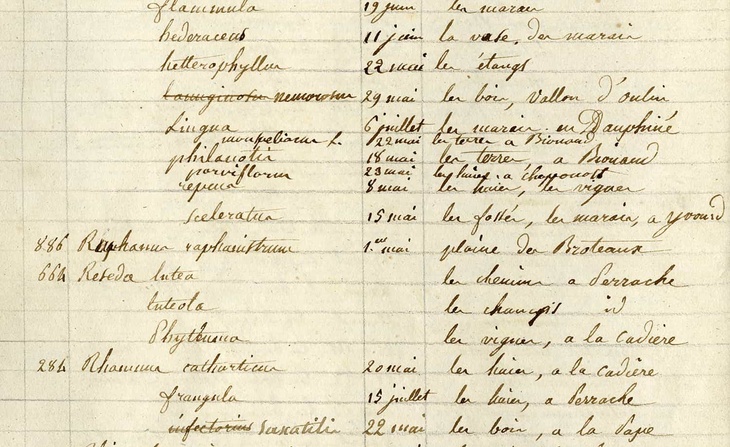 flammula 19 juin les marais
hederaceus 11 juin la vase, des marais
hetterophyllus 22 mai les étangs
lanuginosus nemorosus 29 mai les bois, vallon d'oulin
Lingua 6 juillet les marais en Dauphiné
monspeliacus L. 22 mai les terres a Bionand
philonotis 18 mai les terres a Bionand
parviflorus 23 mai les haies a chaponost
repens 8 mai les haies, les vignes
sceleratus 15 mai les fossés, les marais, a yvourd
886 Raphanus raphanistrum 1.er mai plaine des Broteaux
664 Reseda lutea les chemins a Perrache
luteola les champs id
Phyteuma les vignes, a la Cadière
284 Rhamnus catharticus 20 mai les haies, a la cadière
frangula 15 juillet les haies, a Perrache
infectorius Saxatilis 22 mai les bois, a la Pape